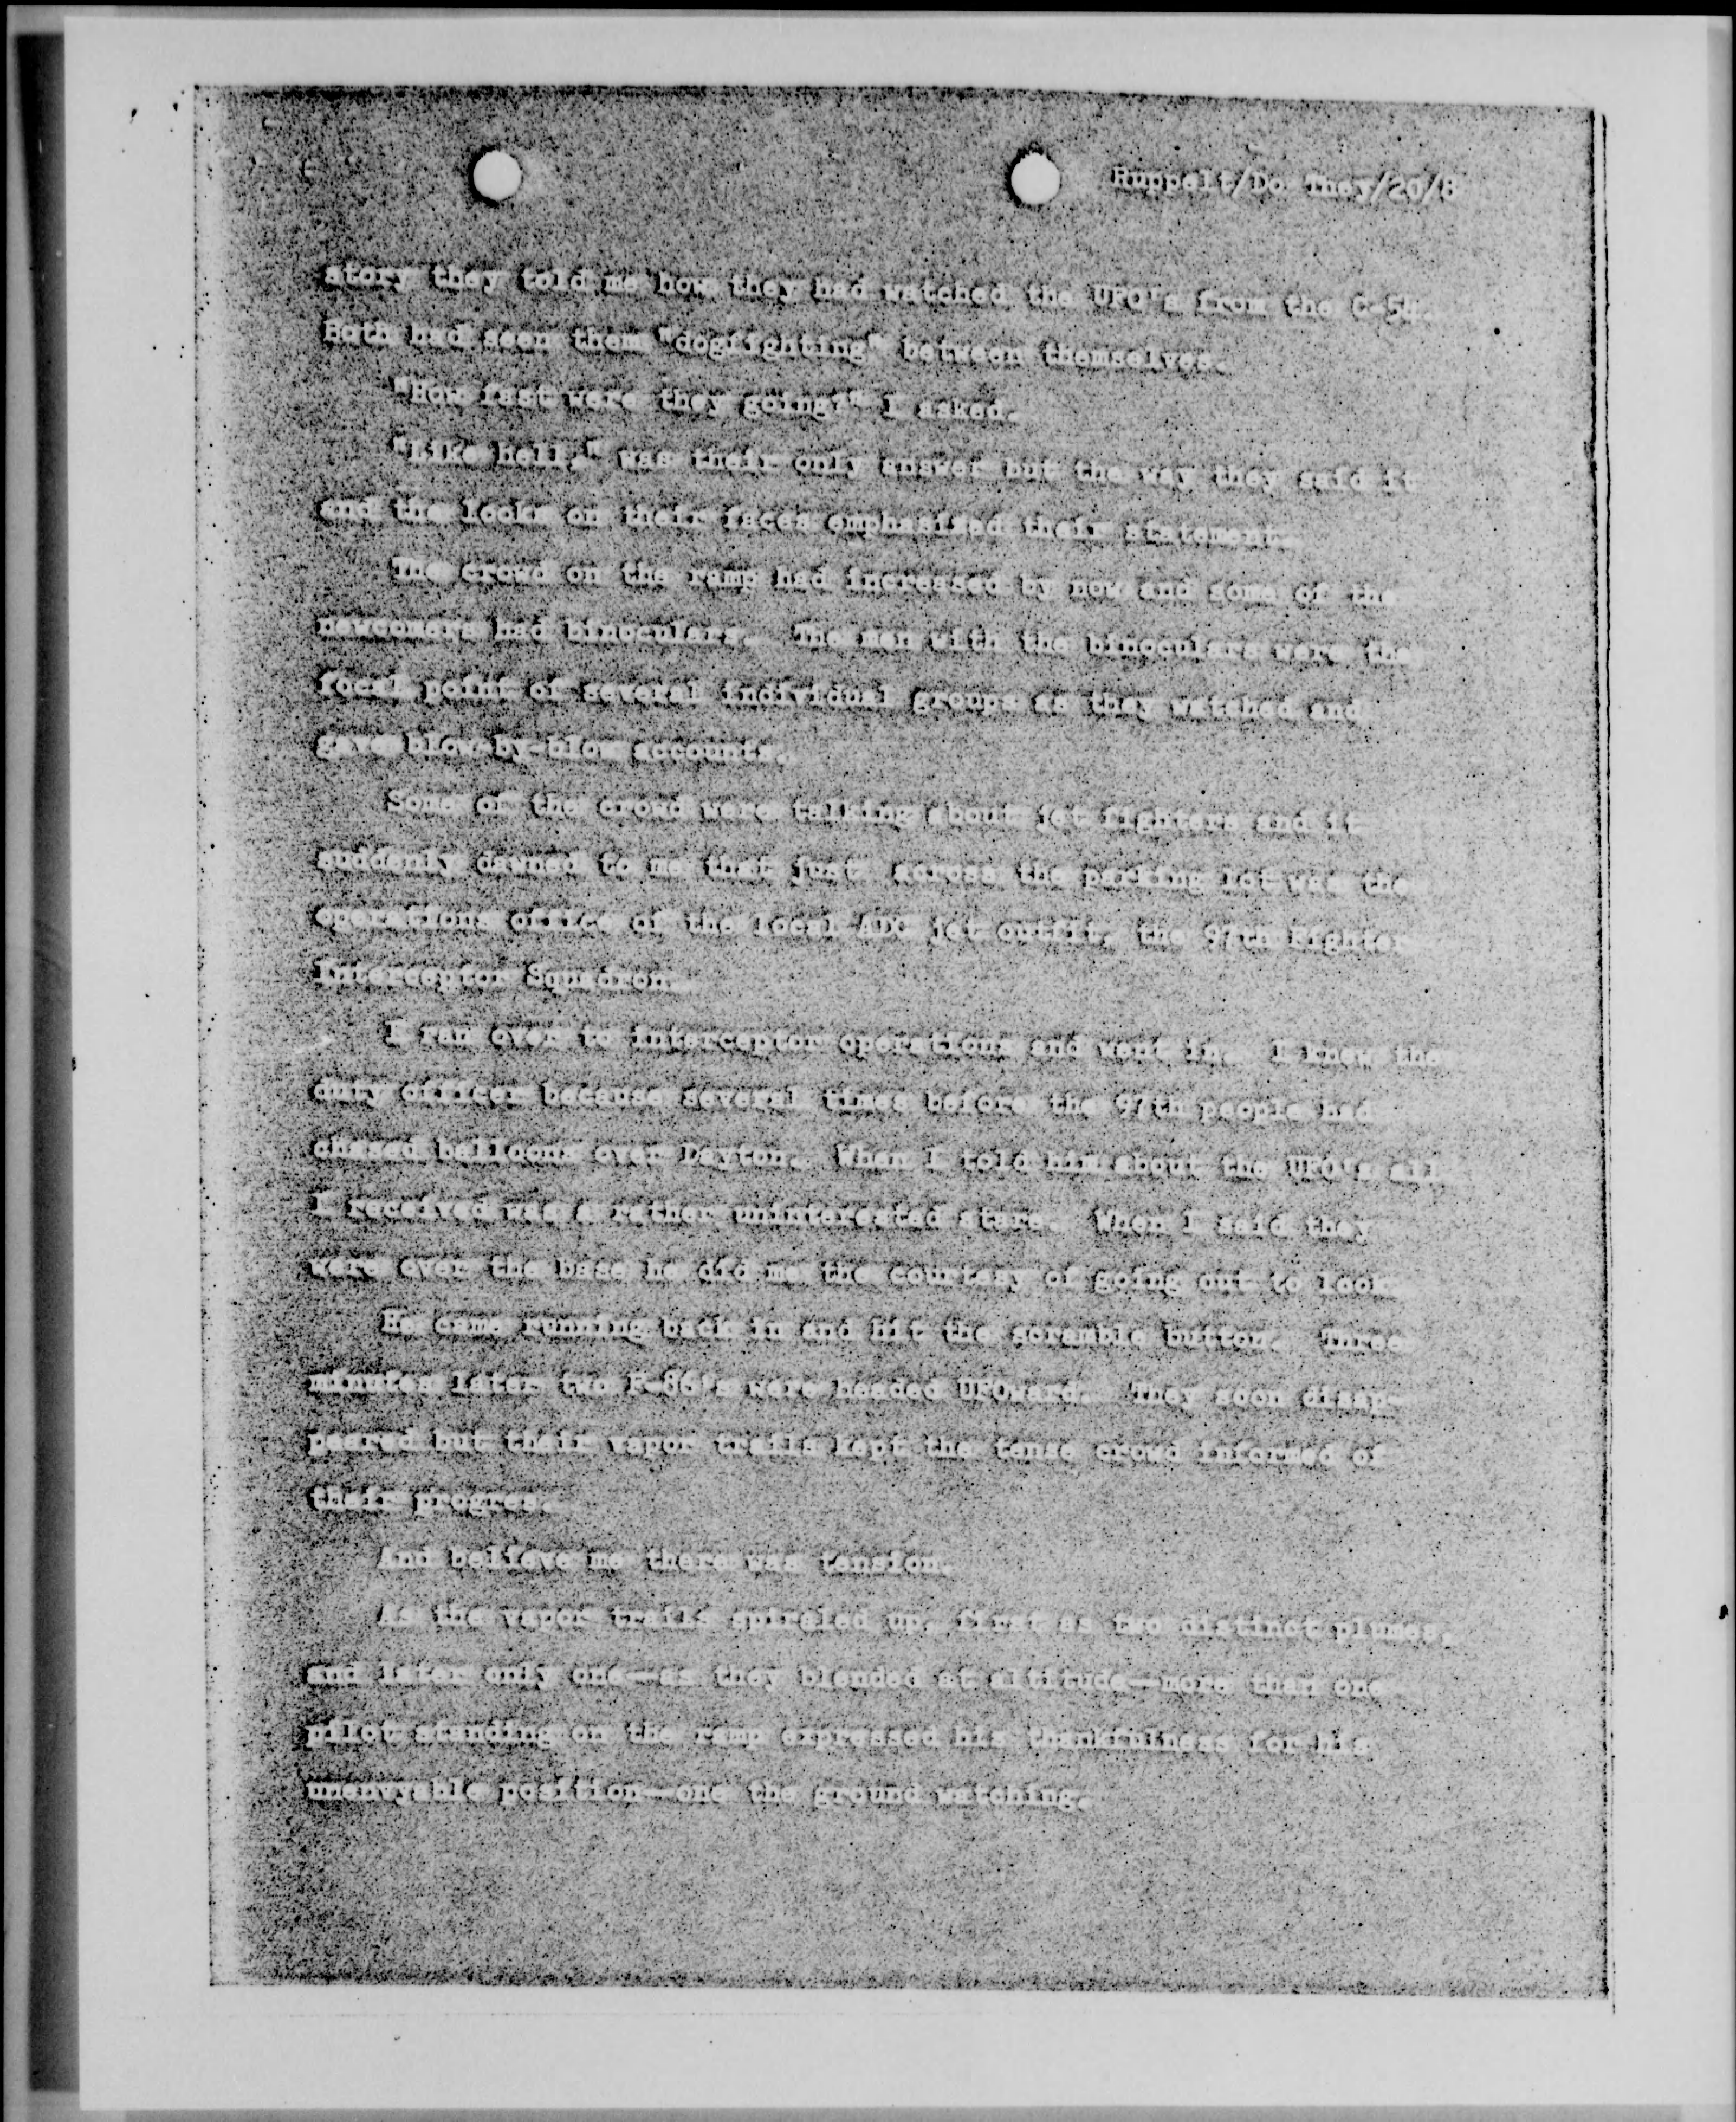 Ruppelt/Do They/20/8
story they told me how they had watched the UFO's from the C-54.
Both had seen them "dogfighting" between themselves.
"How fast were they going?" I asked.
"Like hell," was their only answer but the way they said it
and the looks on their faces emphasized their statement.
The crowd on the ramp had increased by now and some of the
newcomers had binoculars. The men with the binoculars were the
focal point of several individual groups as they watched and
gave blow-by-blow accounts.
Some of the crowd were talking about jet fighters and it
suddenly dawned to me that just across the parking lot was the
operations office of the local ADC jet outfit, the 97th Fighter
Interceptor Squadron.
I ran over to interceptor operations and went in. I knew the
duty officer because several times before the 97th people had
chased balloons over Dayton. When I told him about the UFO's all
I received was a rather uninterested stare. When I said they
were over the base he did me the courtesy of going out to look.
He came running back in and hit the scramble button. Three
minutes later two F-86's were headed UFOward. They soon disap-
peared but their vapor trails kept the tense crowd informed of
their progres.
And believe me there was tension.
As the vapor trails spiraled up, first as two distinct plumes,
and later only one—as they blended at altitude—more than one
pilot standing on the ramp expressed his thankfulness for his
unenvyable position—one the ground watching.